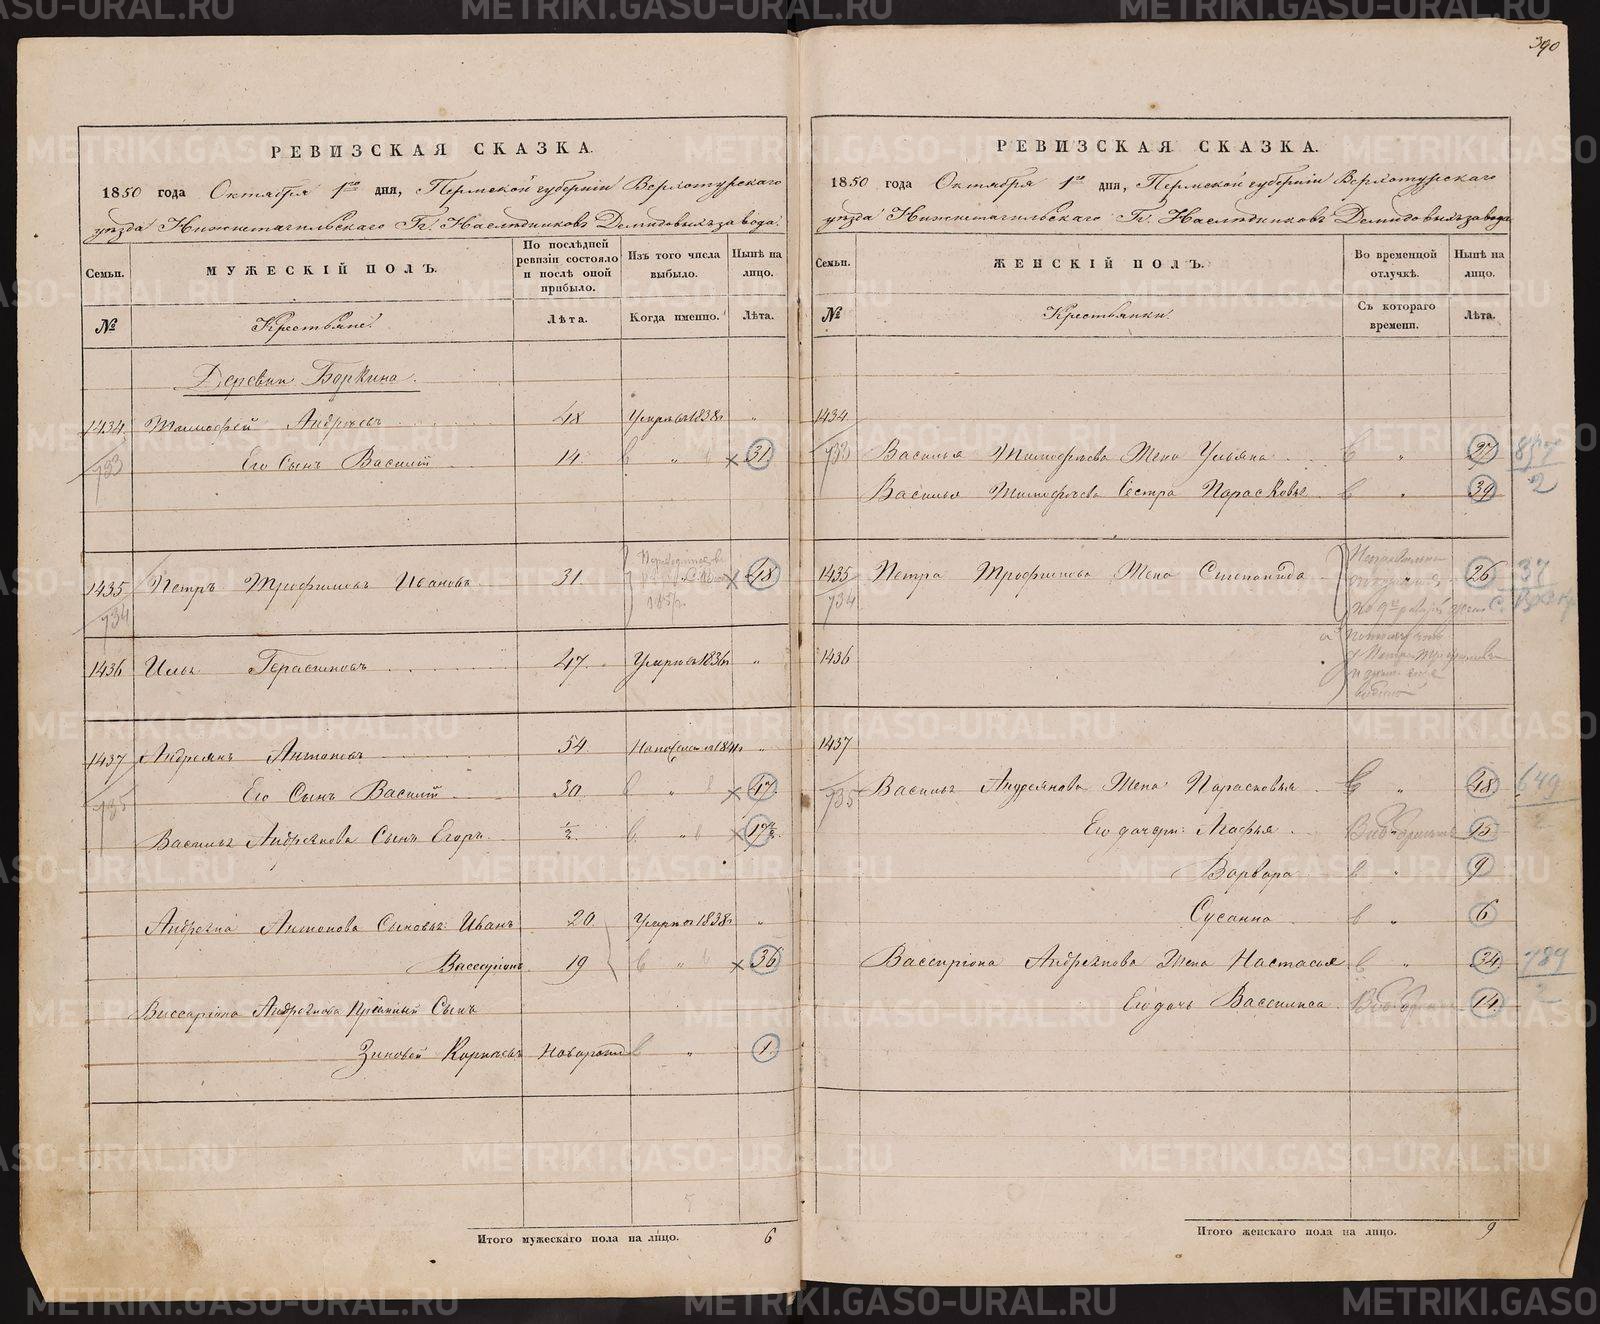 390
РЕВИЗСКАЯ СКАЗКА.
1850 года Октября 1го дня, Пермской губерніи Верхотурскаго
уѣзда Нижнетагильскаго Гг. Наслѣдниковъ Демидовыхъ завода.
Семьи.
МУЖЕСКІЙ ПОЛЪ.
По послѣдней ревизіи состояло и послѣ оной прибыло.
Изъ того числа выбыло.
Нынѣ на лицо.
№
Крестьяне.
Лѣта.
Когда именно.
Лѣта.
Деревни Боркина.
1434 Тимофей Андреевъ 48 Умеръ въ 1838 г. „
733 Его Сынъ Василій 14 „ 31
1435 Петръ Трофимовъ Ивановъ 31 48
734
1436 Илья Герасимовъ 47 Умеръ въ 1836 г. „
1437 Андреянъ Антоновъ 54 1841 г. „
735 Его Сынъ Василій 30 „ 47
Василья Андреянова Сынъ Егоръ ½ „ 17½
Андреяна Антонова Сыновья: Иванъ 20 Умеръ въ 1838 г. „
Виссаріонъ 19 „ 36
Виссаріона Андреянова Пріемный Сынъ
Зиновей Корниевъ Новорожд. „ 1
Итого мужескаго пола на лицо. 6
РЕВИЗСКАЯ СКАЗКА.
1850 года Октября 1го дня, Пермской губерніи Верхотурскаго
уѣзда Нижнетагильскаго Гг. Наслѣдниковъ Демидовыхъ завода
Семьи.
ЖЕНСКІЙ ПОЛЪ.
Во временной отлучкѣ.
Нынѣ на лицо.
№
Крестьянки.
Съ котораго времени.
Лѣта.
1434
733 Василья Тимофѣева Жена Ульяна „ 37
Василья Тимофѣева Сестра Парасковья „ 39
1435 Петра Трофимова Жена Степанида 26 37
734
1436
1437
735 Василья Андреянова Жена Парасковья „ 48 649
Его дочери: Агафья „ 15 2
Варвара „ 9
Сусанна „ 6
Виссаріона Андреянова Жена Настасья „ 34 789
Его дочь Василиса 14 2
Итого женскаго пола на лицо. 9
METRIKI.GASO-URAL.RU